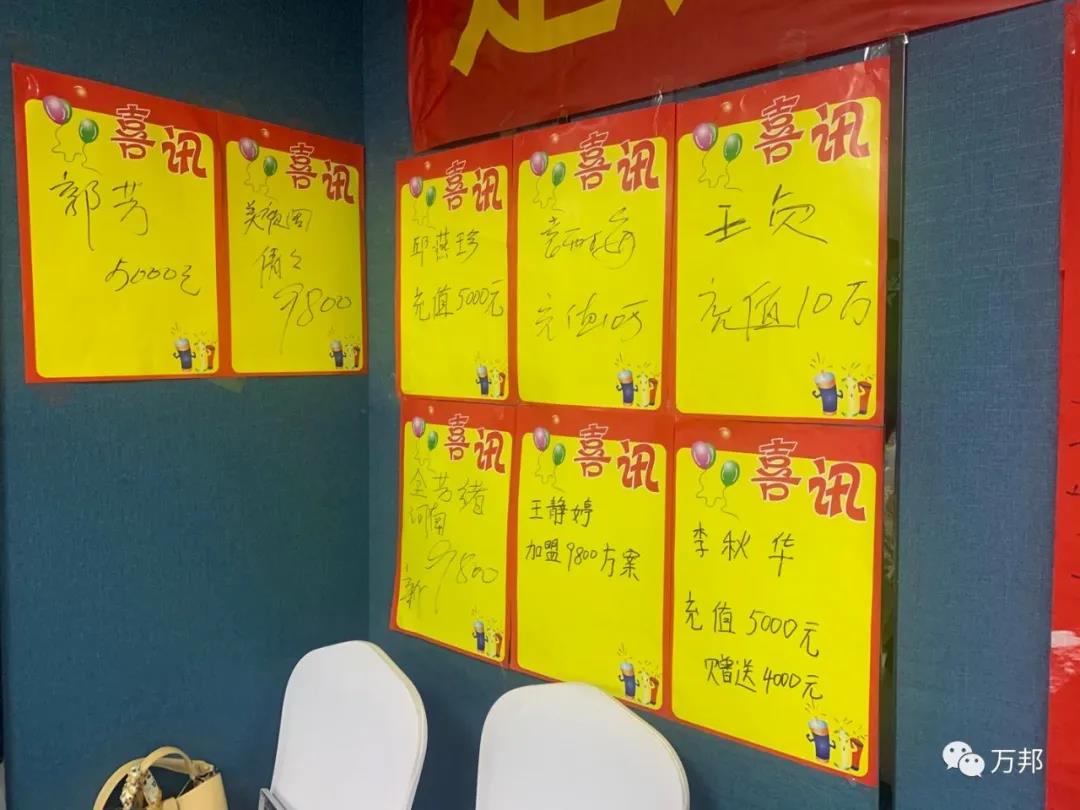 喜讯
郭芳
5000元
喜讯
倩
9800
喜讯
邱燕珍
充值5000元
喜讯
充值10万
喜讯
王贞
充值10万
喜讯
金芳绪
河南
新 9800
喜讯
王静婷
加盟9800方案
喜讯
李秋华
充值5000元
赠送4000元
万邦